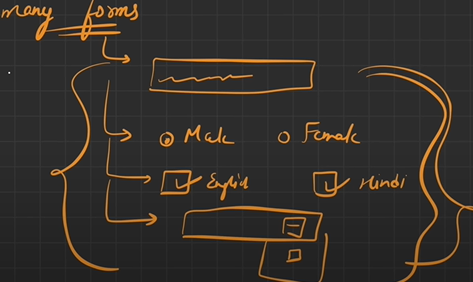 many forms
Male Female
English Hindi